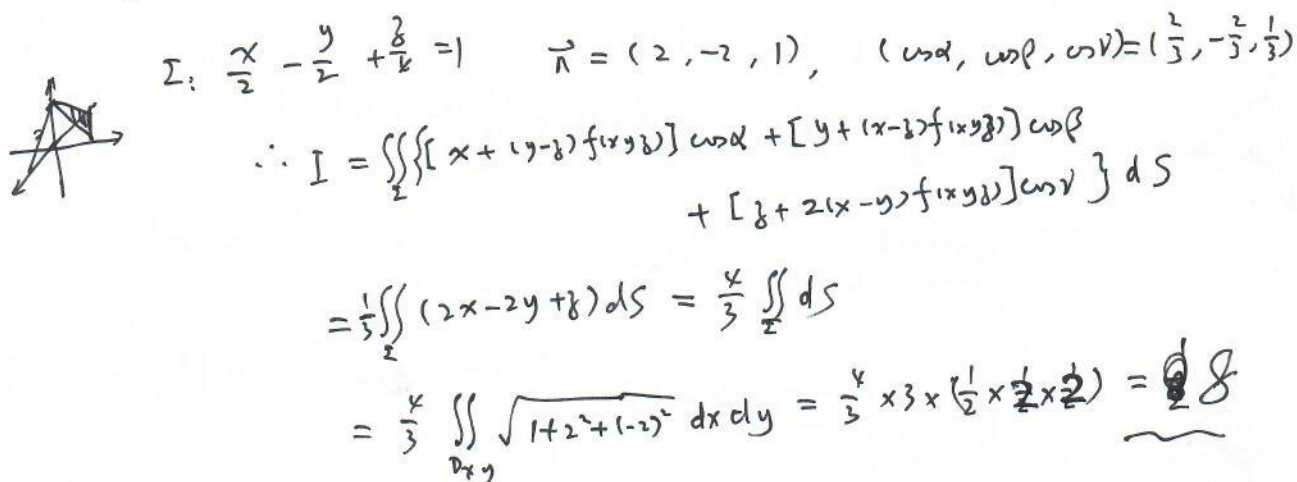 Σ: x/2 - y/2 + z/4 = 1    n⃗ = (2, -2, 1),    (cosα, cosβ, cosγ) = (2/3, -2/3, 1/3)
∴ I = ∬_Σ {[x + (y-z)f(xyz)] cosα + [y + (x-z)f(xyz)] cosβ
+ [z + 2(x-y)f(xyz)] cosγ} dS
= 1/3 ∬_Σ (2x - 2y + z) dS = 4/3 ∬_Σ dS
= 4/3 ∬_Dxy √(1+2²+(-2)²) dx dy = 4/3 × 3 × (1/2 × 2 × 2) = 8